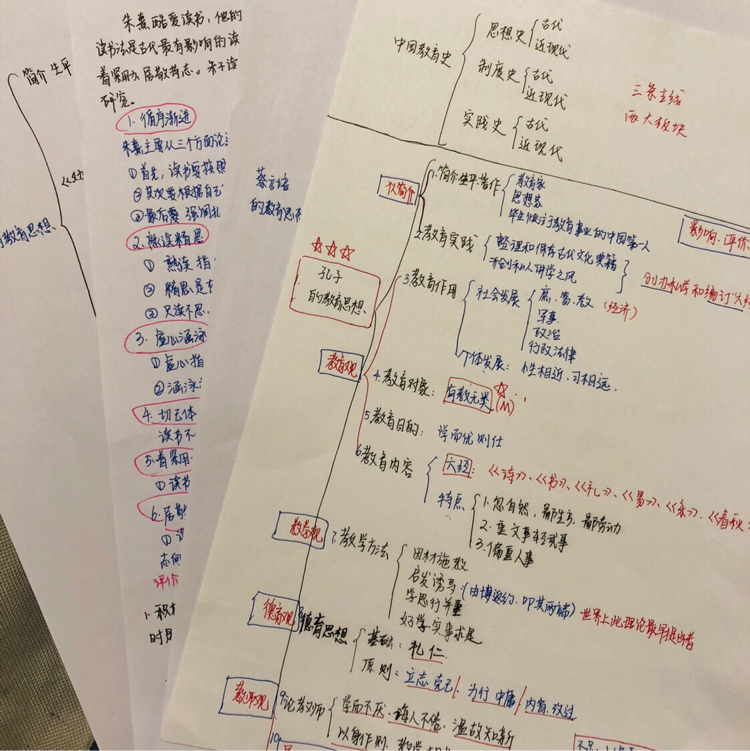 简介 生平
的教育思想.
朱熹酷爱读书,他的
读书法是古代最有影响的读
着紧用力 居敬持志。朱子读
研究。
1. 循序渐进
朱熹主要从三个方面论
①首先,读书要按照
②其次要根据自己
③最后要 强调扎
2. 熟读精思
① 熟读 指
② 精思是
③ 只读不思.
3. 虚心涵泳
① 虚心指
② 涵泳
4. 切己体
读书不
5. 着紧用
① 读书
6. 居敬
①
志向
评价
时
蔡元培
的教育思
中国教育史
思想史 古代
近现代
制度史 古代
近现代
实践史 古代
近现代
三条主线
两大板块
孔子
的教育思想.
1.简介生平著作 教育家
思想家
毕生倾注于教育事业的中国第一人
影响、评价
2.教育实践 整理和保存古代文化典籍
开创私人讲学之风
创办私学和编订"六经
教育观
3.教育作用 社会发展 庶、富、教 (经济)
军事
政治
行政法律
个体发展: 性相近、习相远.
4.教育对象: 有教无类 (M)
5.教育目的: 学而优则仕
6.教育内容 六经: <<诗>>、<<书>>、<<礼>>、<<易>>、<<乐>>、<<春秋>>
特点 1.忽自然,鄙生产,鄙劳动
2.重文事轻武事
3.偏重人事
教学观
7.教学方法 因材施教
启发诱导 (由博返约、叩其两端) 世界上此理论最早提出者
学思行并重
好学实事求是
德育观
8.德育思想 基础: 礼 仁
原则: 立志 克己 / 力行 中庸 / 内省、改过
教师观
9.论教师 学而不厌、诲人不倦、温故知新
以身作则、教学
10.